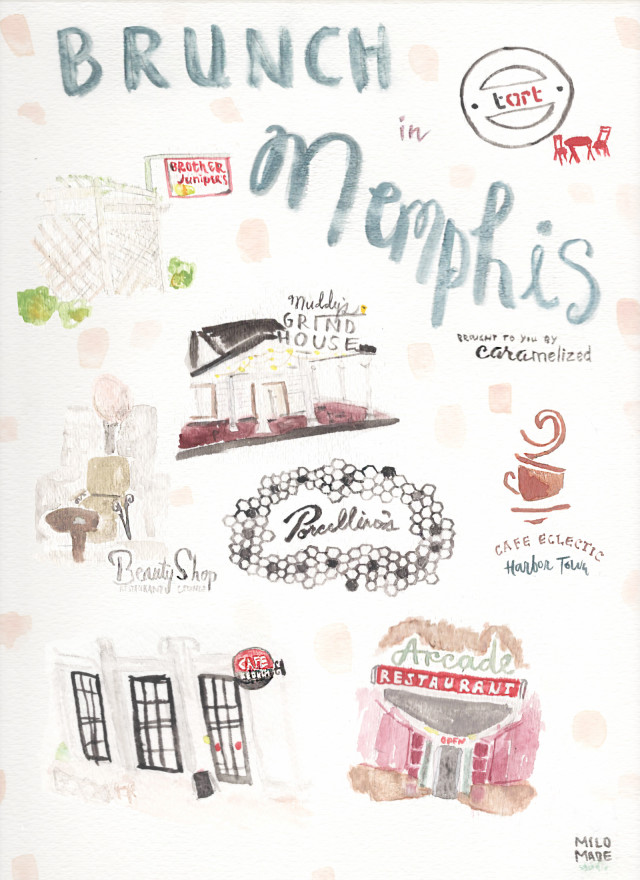 BRUNCH
in
Memphis
tart
BROTHER
Juniper's
BROUGHT TO YOU BY
caramelized
Muddy's
GRIND
HOUSE
Porcellino's
CAFE ECLECTIC
Harbor Town
Beauty Shop
CAFE
Arcade
RESTAURANT
OPEN
MILO
MADE